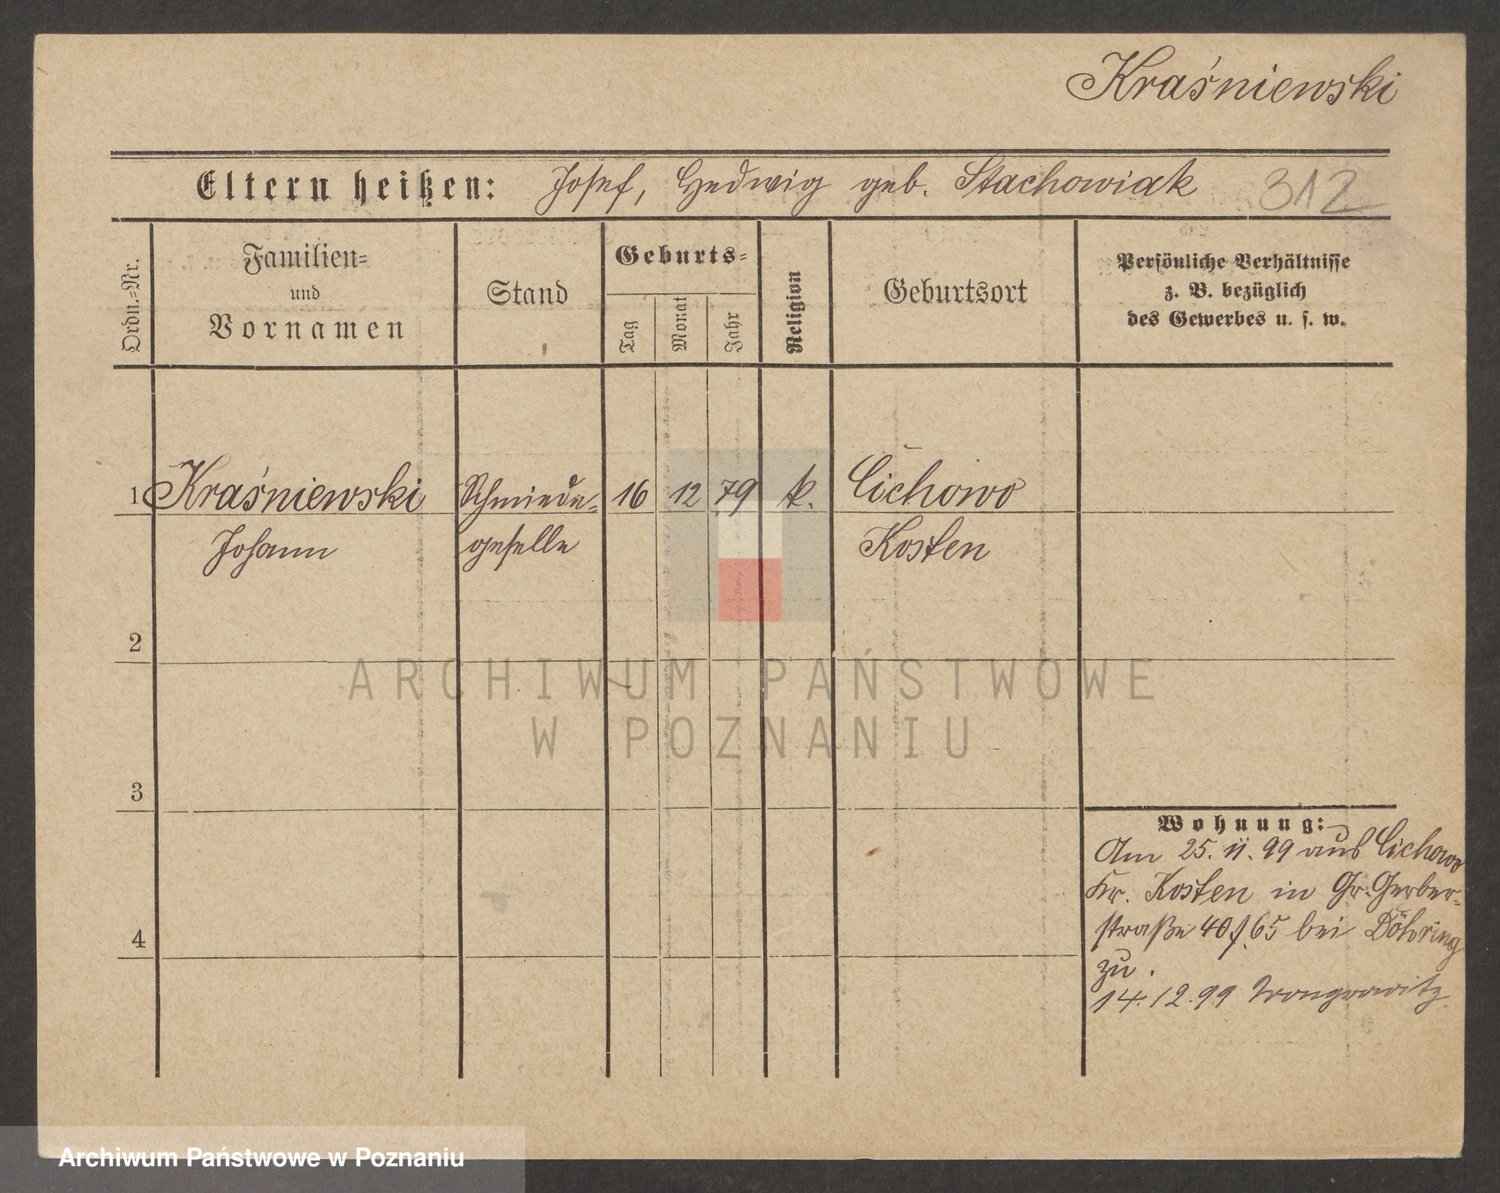 Kraśniewski
Eltern heißen: Josef, Hedwig geb. Stachowiak 312
Ordn.=Nr.
Familien=
und
Vornamen
Stand
Geburts=
Tag
Monat
Jahr
Religion
Geburtsort
Persönliche Verhältnisse
z. B. bezüglich
des Gewerbes u. s. w.
1 Kraśniewski Schmiede= 16 12 79 k. Cichowo
Johann geselle Kosten
2
ARCHIWUM PAŃSTWOWE
W POZNANIU
3
Wohnung:
Am 25. 11. 99 aus Cichowo
Kr. Kosten in Gr. Gerber=
straße 40 f. 65 bei Döhring
zu.
4
14.12.99 Wongrowitz
Archiwum Państwowe w Poznaniu